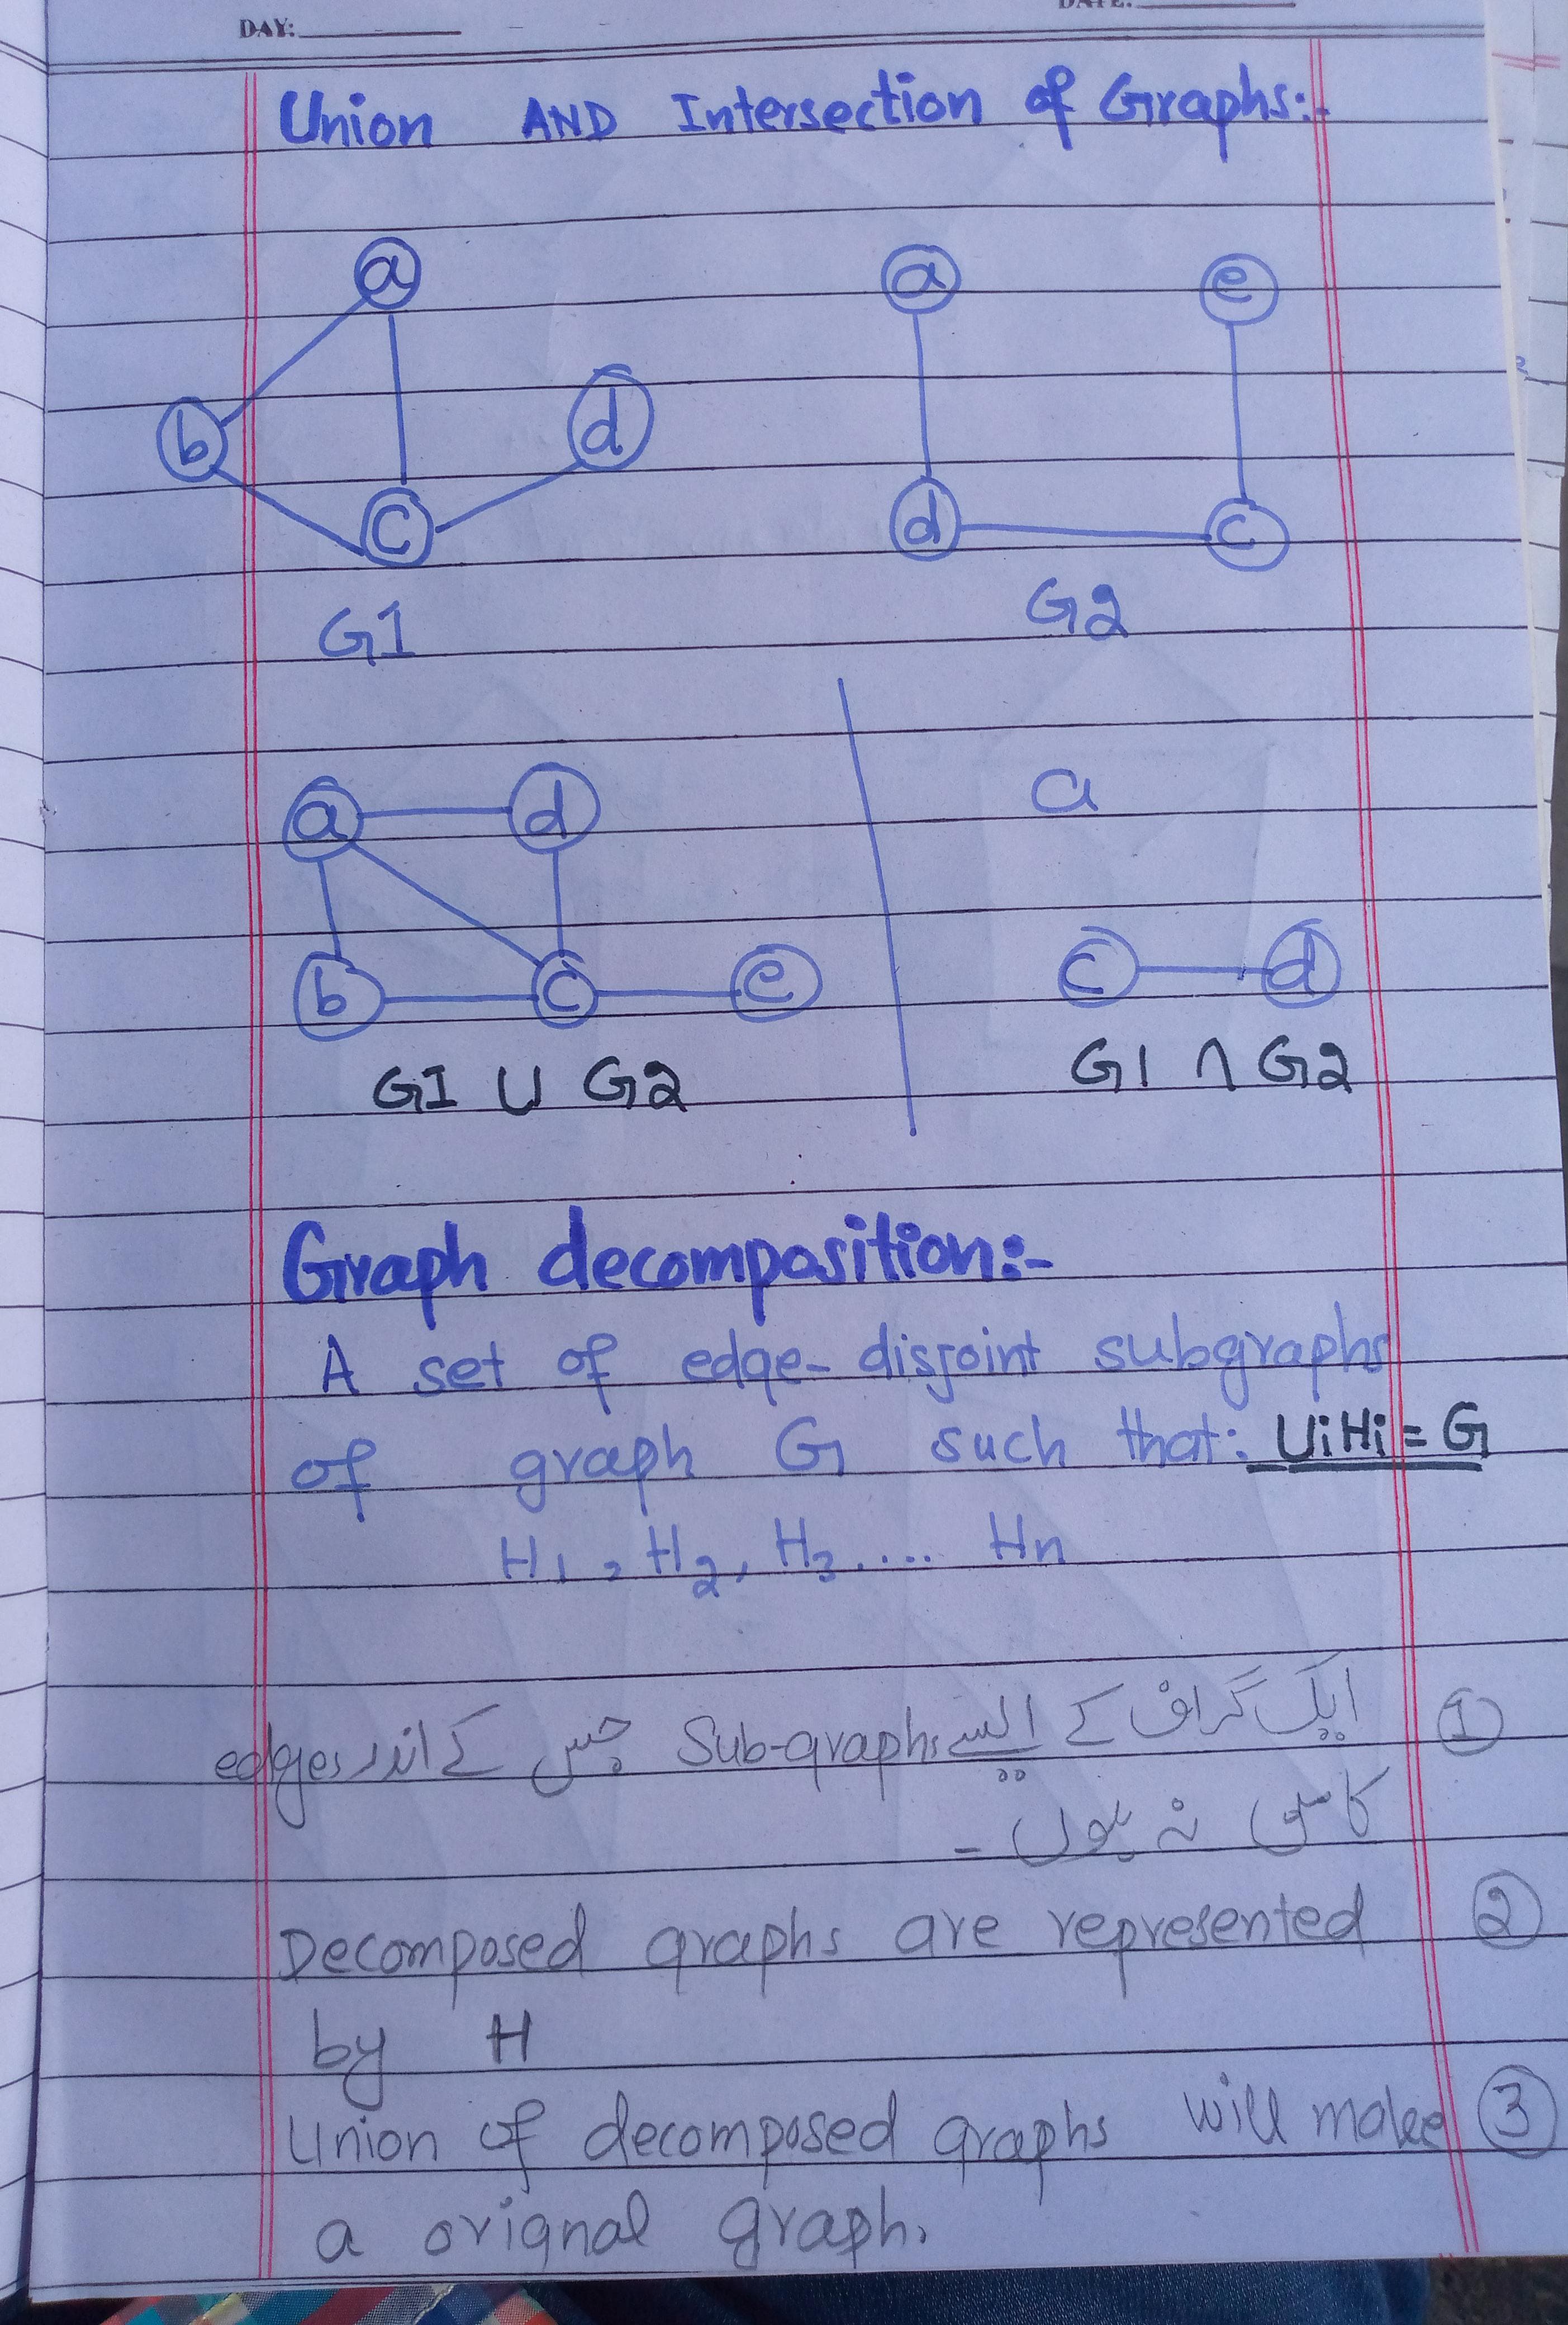 DAY:
DATE:
Union AND Intersection of Graphs:-
a
b
c
d
G1
a
e
d
c
G2
a
d
b
c
e
G1 U G2
a
c
d
G1 ∩ G2
Graph decomposition:-
A set of edge-disjoint subgraphs
of graph G such that: UiHi = G
H1, H2, H3.... Hn
① ایک گراف کے ایسے Sub-graphs جس کے اندر edges
کامن نہ ہوں۔
Decomposed graphs are represented ②
by H
Union of decomposed graphs will make ③
a orignal graph.